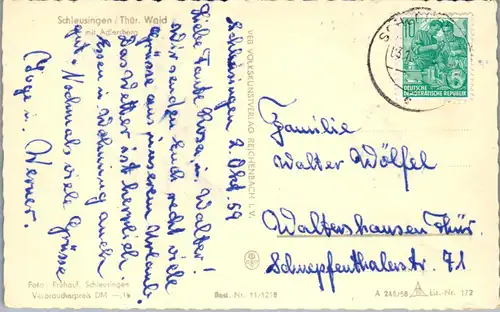 Schleusingen / Thür. Wald
mit Adlersberg
Schleusingen 2. Okt. 59
Liebe Tante Rosa, u. Walter!
Wir senden Euch recht viele
Grüsse aus unserem Urlaub.
Das Wetter ist herrlich
Essen u. Wohnung auch
gut. Nochmals viele Grüsse
Inge u. Werner.
Foto: Frühauf, Schleusingen
Verbraucherpreis DM
Best.-Nr. 11/1218
VEB VOLKSKUNSTVERLAG REICHENBACH i. V.
10
DEUTSCHE
DEMOKRATISCHE REPUBLIK
Familie
Walter Wölfel
Waltershausen Thür.
Schnepfenthalerstr. 71
A 248/58
Liz.-Nr. 1/2